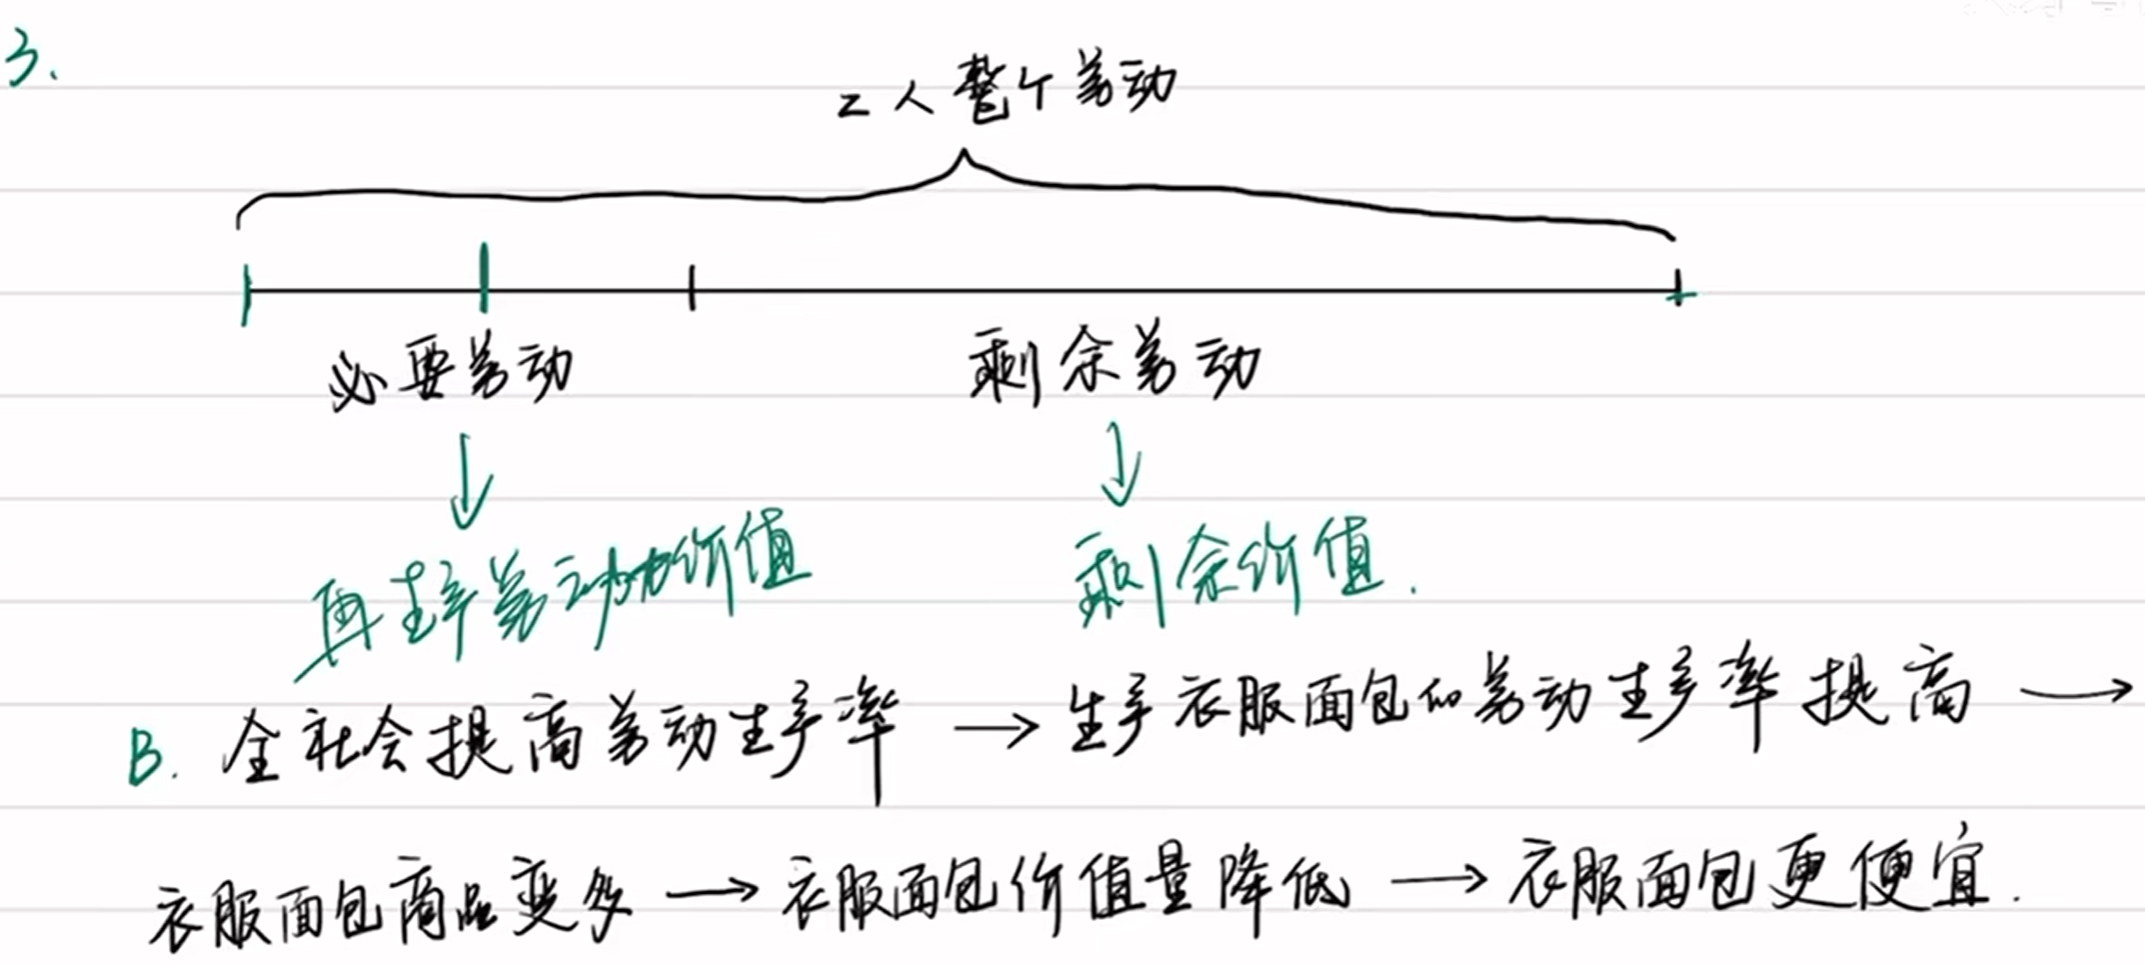 3.
工人整个劳动
必要劳动 剩余劳动
再生产劳动力价值 剩余价值.
B. 全社会提高劳动生产率 → 生产衣服面包的劳动生产率提高 →
衣服面包商品变多 → 衣服面包价值量降低 → 衣服面包更便宜.